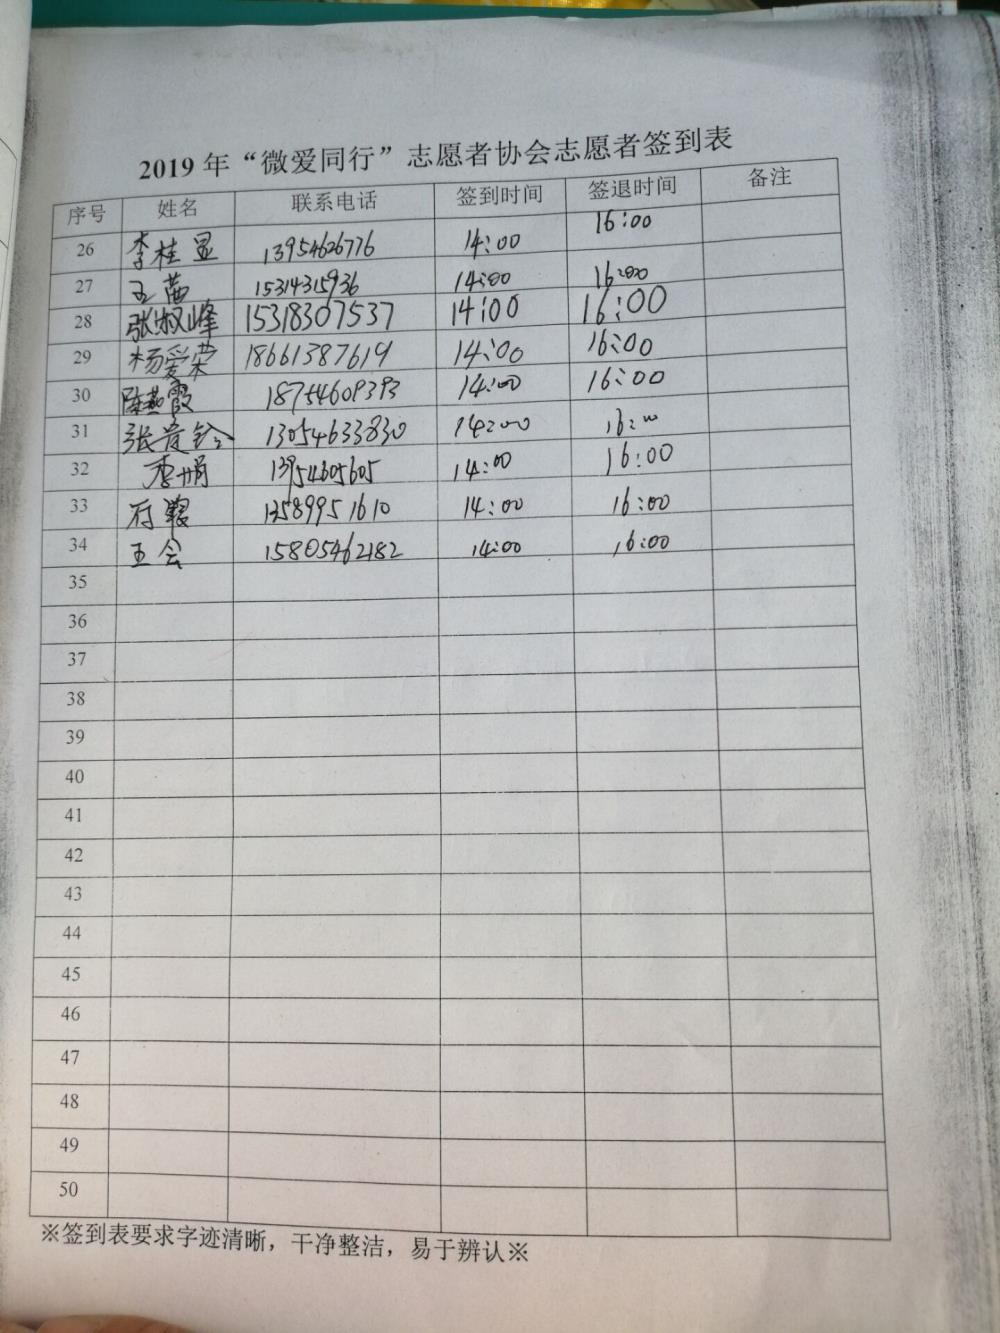 2019年“微爱同行”志愿者协会志愿者签到表
序号 姓名 联系电话 签到时间 签退时间 备注
26 李桂显 13954626776 14:00 16:00
27 王茜 15314315936 14:00 16:00
28 张淑峰 15318307537 14:00 16:00
29 杨爱荣 18661387619 14:00 16:00
30 陈燕霞 18754609393 14:00 16:00
31 张爱铃 13054633830 14:00 16:00
32 李娟 13954605605 14:00 16:00
33 13589951610 14:00 16:00
34 王会 15805462182 14:00 16:00
35
36
37
38
39
40
41
42
43
44
45
46
47
48
49
50
※签到表要求字迹清晰，干净整洁，易于辨认※